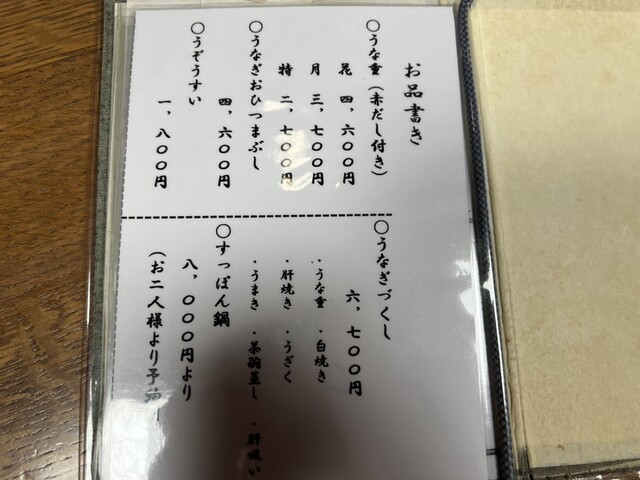 お品書き
〇うな重（赤だし付き）
花 四、六〇〇円
月 三、七〇〇円
特 二、七〇〇円
〇うなぎおひつまぶし
四、六〇〇円
〇うぞうすい
一、八〇〇円
〇うなぎづくし
六、七〇〇円
・うな重 ・白焼き
・肝焼き ・うざく
・うまき ・茶碗蒸し ・肝吸い
〇すっぽん鍋
八、〇〇〇円より
（お二人様より予